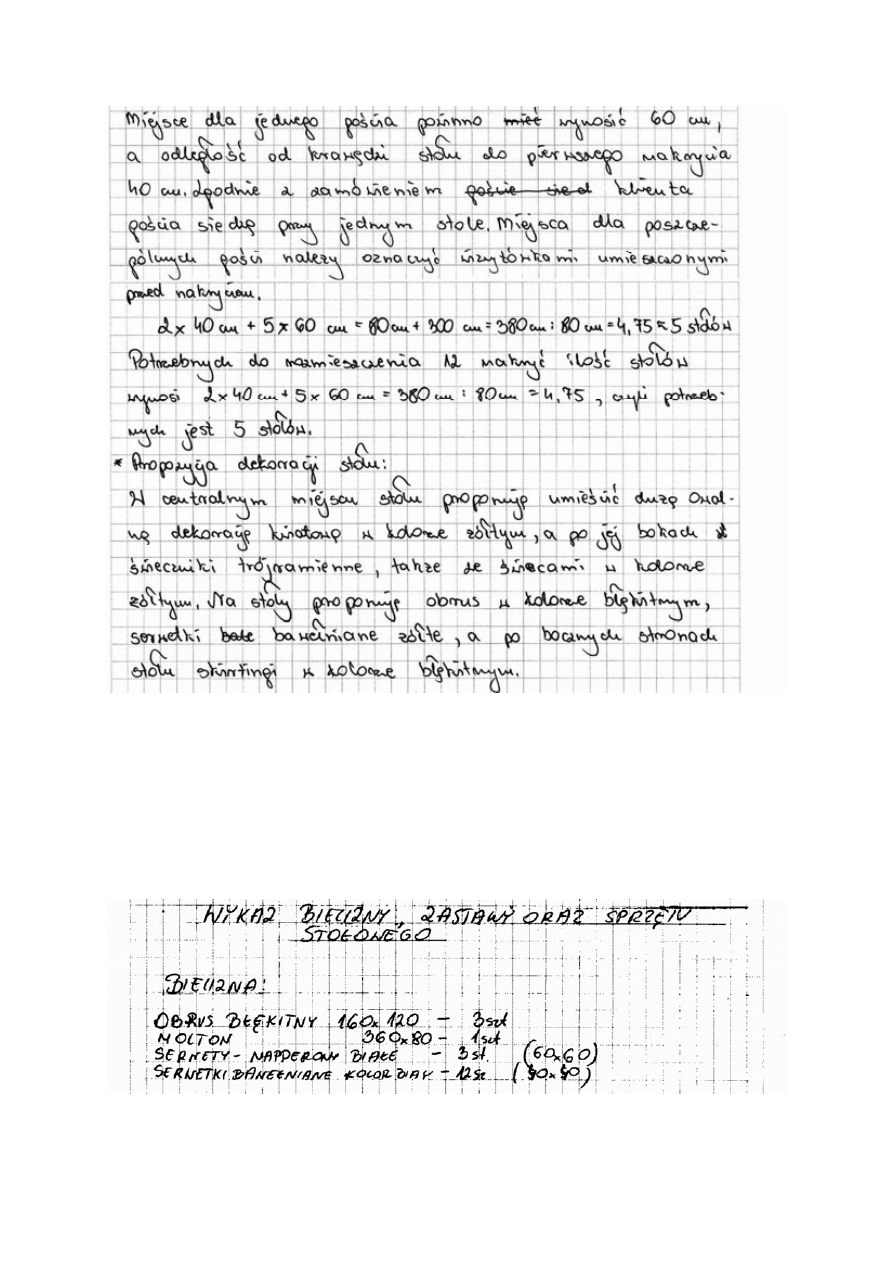 Miejsce dla jednego gościa powinno mieć wynosić 60 cm,
a odległość od krawędzi stołu do pierwszego nakrycia
40 cm. Zgodnie z zamówieniem goście sied klienta
gościa siedzę przy jednym stole. Miejsca dla poszcze-
gólnych gości należy oznaczyć wizytówkami umieszczonymi
przed nakryciem.
2 x 40 cm + 5 x 60 cm = 80 cm + 300 cm = 380 cm : 80 cm = 4,75 ≈ 5 stołów
Potrzebnych do rozmieszczenia 12 nakryć ilość stołów
wynosi 2 x 40 cm + 5 x 60 cm = 380 cm : 80 cm = 4,75, czyli potrzeb-
nych jest 5 stołów.
* Propozycja dekoracji stołu:
W centralnym miejscu stołu proponuję umieścić dużą owal-
ną dekorację kwiatową w kolorze żółtym, a po jej bokach
świeczniki trójramienne, także ze świecami w kolorze
żółtym. Na stoły proponuję obrus w kolorze błękitnym,
serwetki bawełniane żółte, a po bocznych stronach
stołu skirtingi w kolorze błękitnym.
WYKAZ BIELIZNY, ZASTAWY ORAZ SPRZĘTU
STOŁOWEGO
BIELIZNA:
OBRUS BŁĘKITNY 160x120 – 3szt
MOLTON 360x80 – 1szt
SERWETY - NAPPERONY BIAŁE – 3szt. (60x60)
SERWETKI BAWEŁNIANE KOLOR BIAŁY – 12sz (40x40)